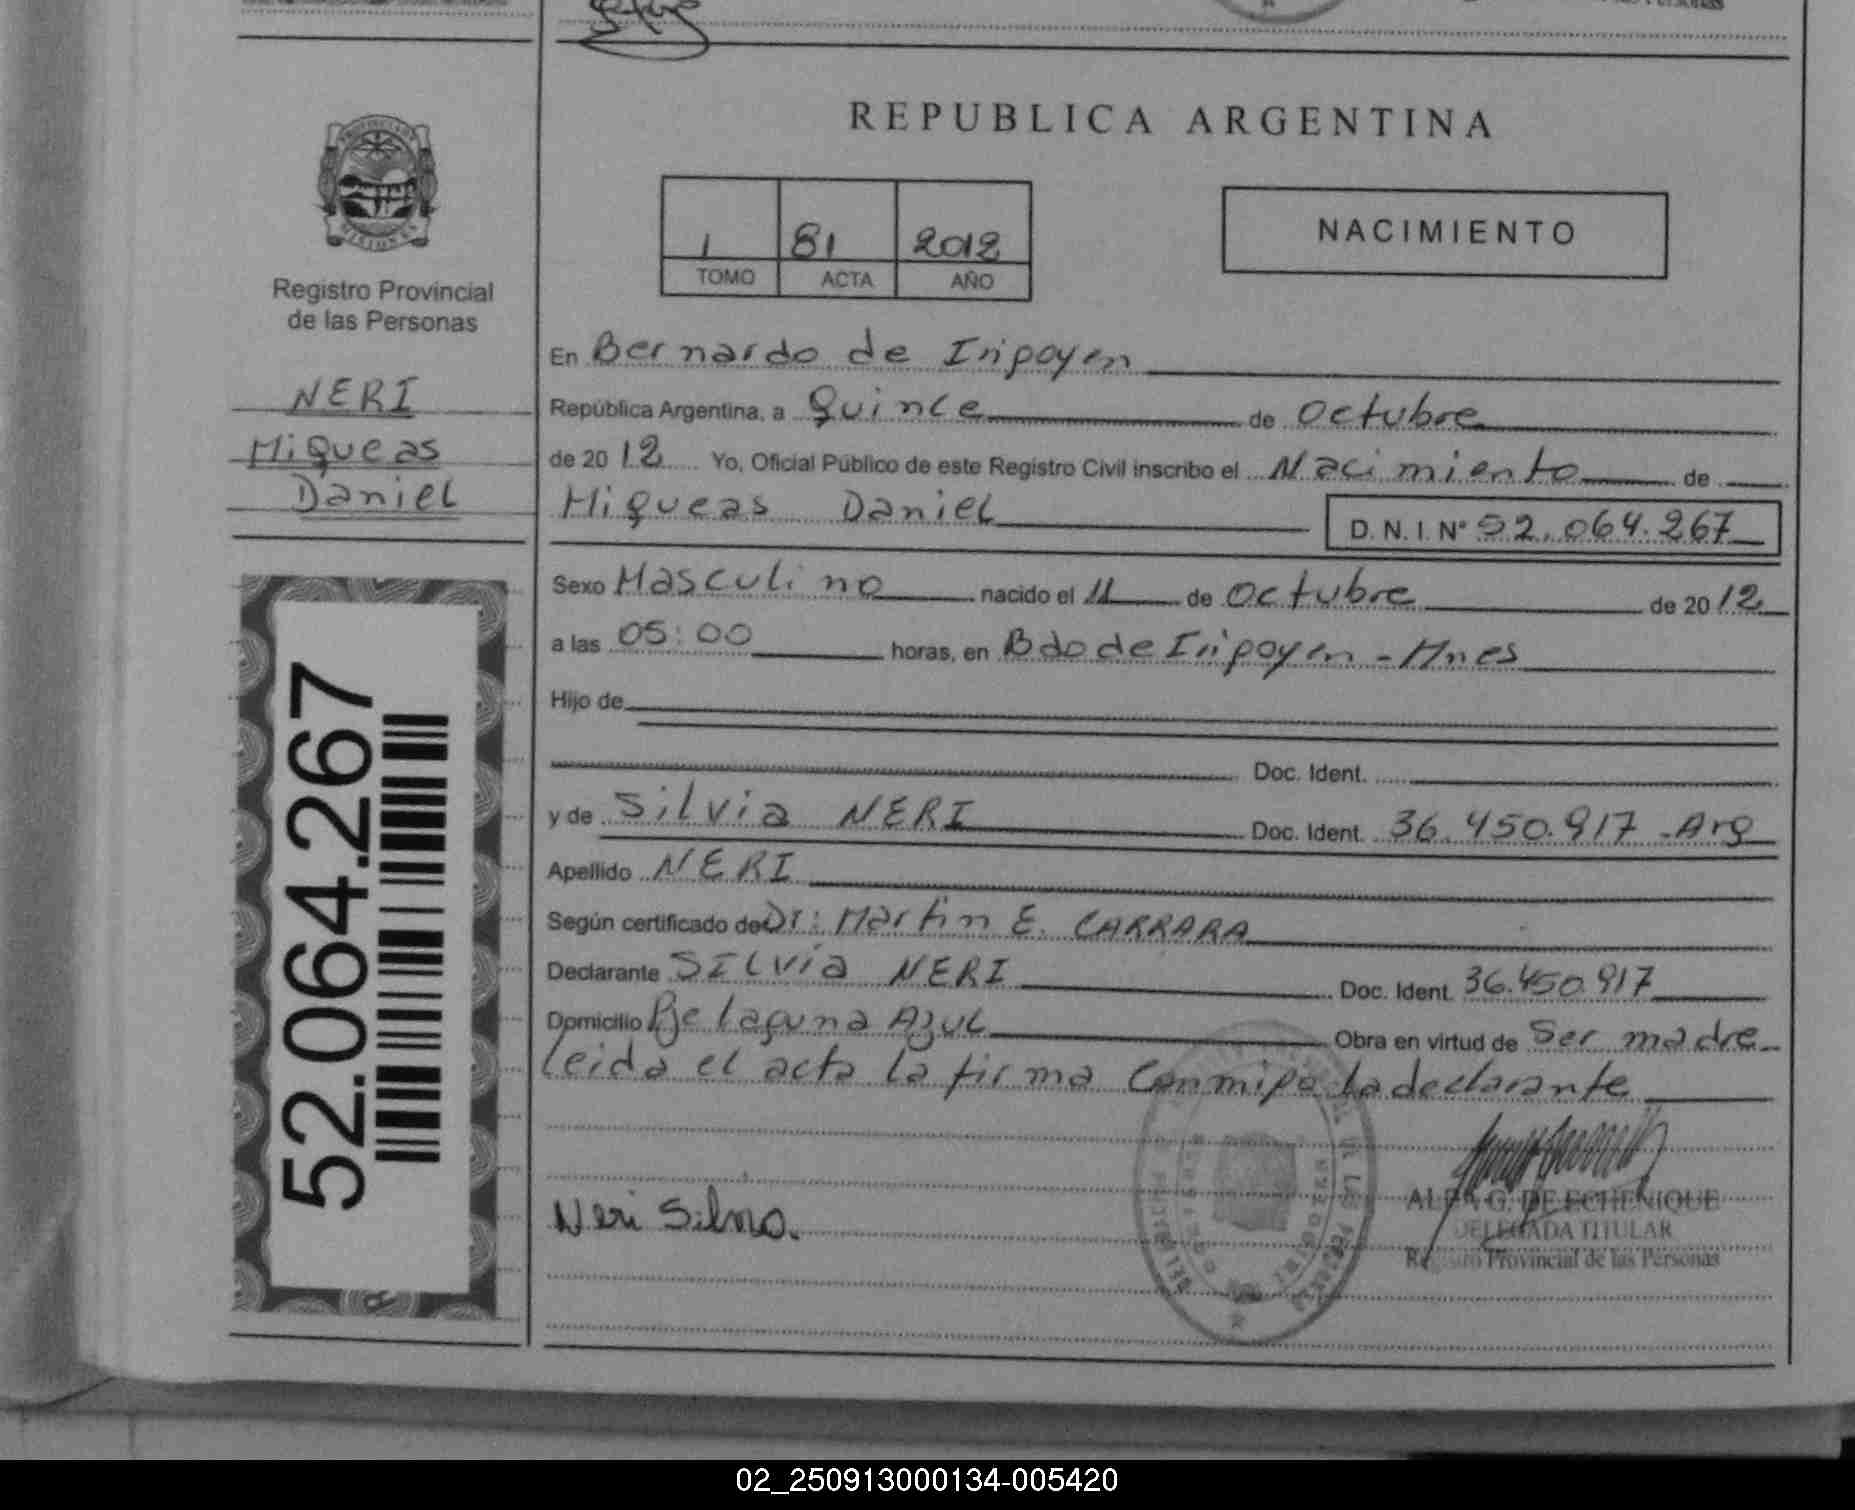 REPUBLICA ARGENTINA
1 81 2012
TOMO ACTA AÑO
NACIMIENTO
PROVINCIA DE
MISIONES
Registro Provincial
de las Personas
NERI
Miqueas
Daniel
52.064.267
En Bernardo de Irigoyen
República Argentina, a Quince de Octubre
de 2012 Yo, Oficial Público de este Registro Civil inscribo el Nacimiento de
Miqueas Daniel D.N.I. Nº 52.064.267
Sexo Masculino nacido el 11 de Octubre de 2012
a las 05:00 horas, en Bdo de Irigoyen - Mnes
Hijo de
Doc. Ident.
y de Silvia NERI Doc. Ident. 36.450.917 - Arg
Apellido NERI
Según certificado de Dr: Martin E. CARRARA
Declarante SILVIA NERI Doc. Ident. 36.450.917
Domicilio Pje laguna Azul Obra en virtud de Ser madre
leida el acta la firma Conmigo la declarante
Neri Silvia.
G. DE ECHENIQUE
DELEGADA TITULAR
Registro Provincial de las Personas
02_250913000134-005420